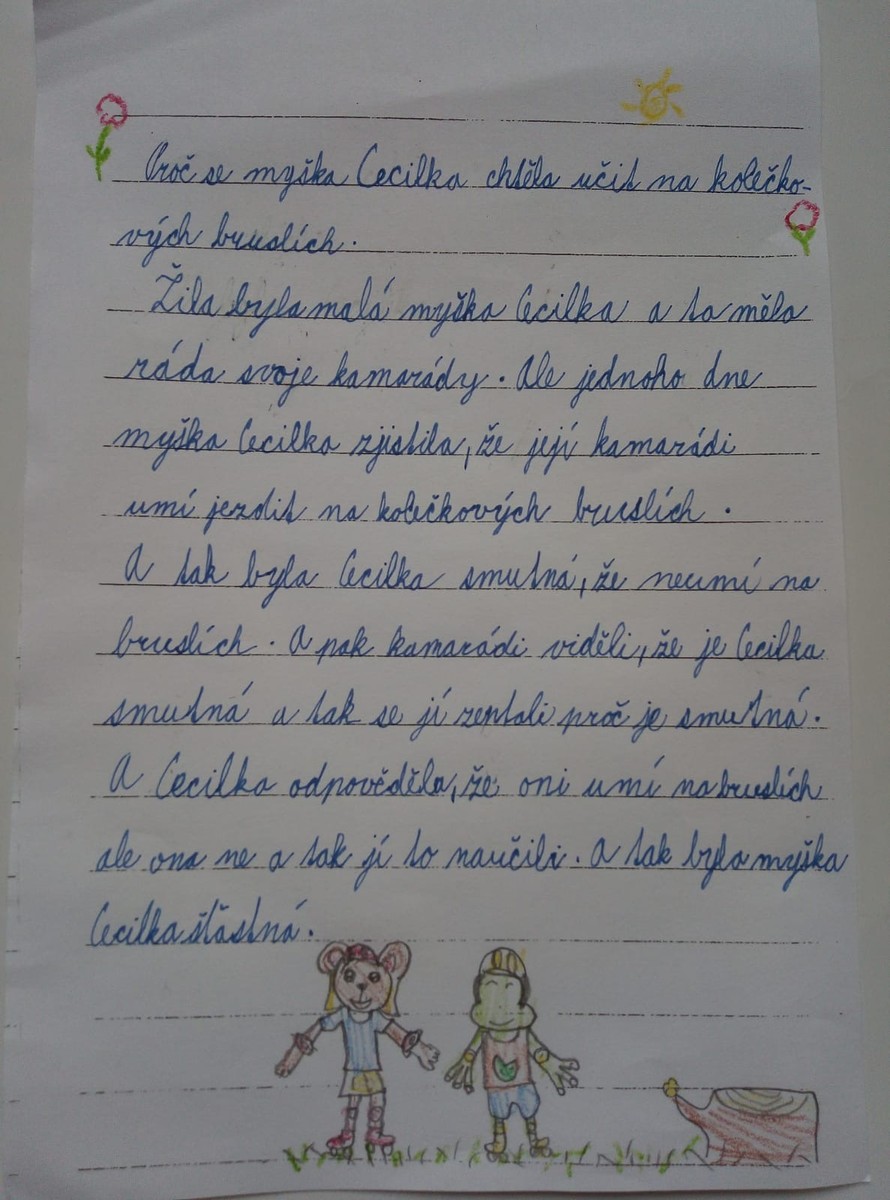 Proč se myška Cecilka chtěla učit na kolečko-
vých bruslích.
Žila byla malá myška Cecilka a ta měla
ráda svoje kamarády. Ale jednoho dne
myška Cecilka zjistila, že její kamarádi
umí jezdit na kolečkových bruslích.
A tak byla Cecilka smutná, že neumí na
bruslích. A pak kamarádi viděli, že je Cecilka
smutná a tak se jí zeptali proč je smutná.
A Cecilka odpověděla, že oni umí na bruslích
ale ona ne a tak jí to naučili. A tak byla myška
Cecilka šťastná.